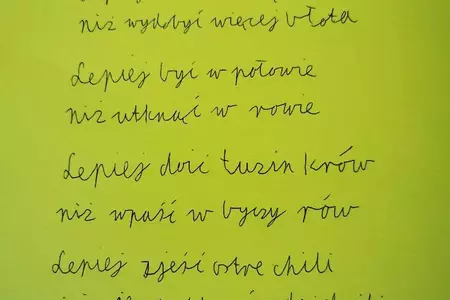 niż wydobyć więcej błota
Lepiej być w połowie
niż utknąć w rowie
Lepiej doić tuzin krów
niż wpaść w byczy rów
Lepiej zjeść ostre chili